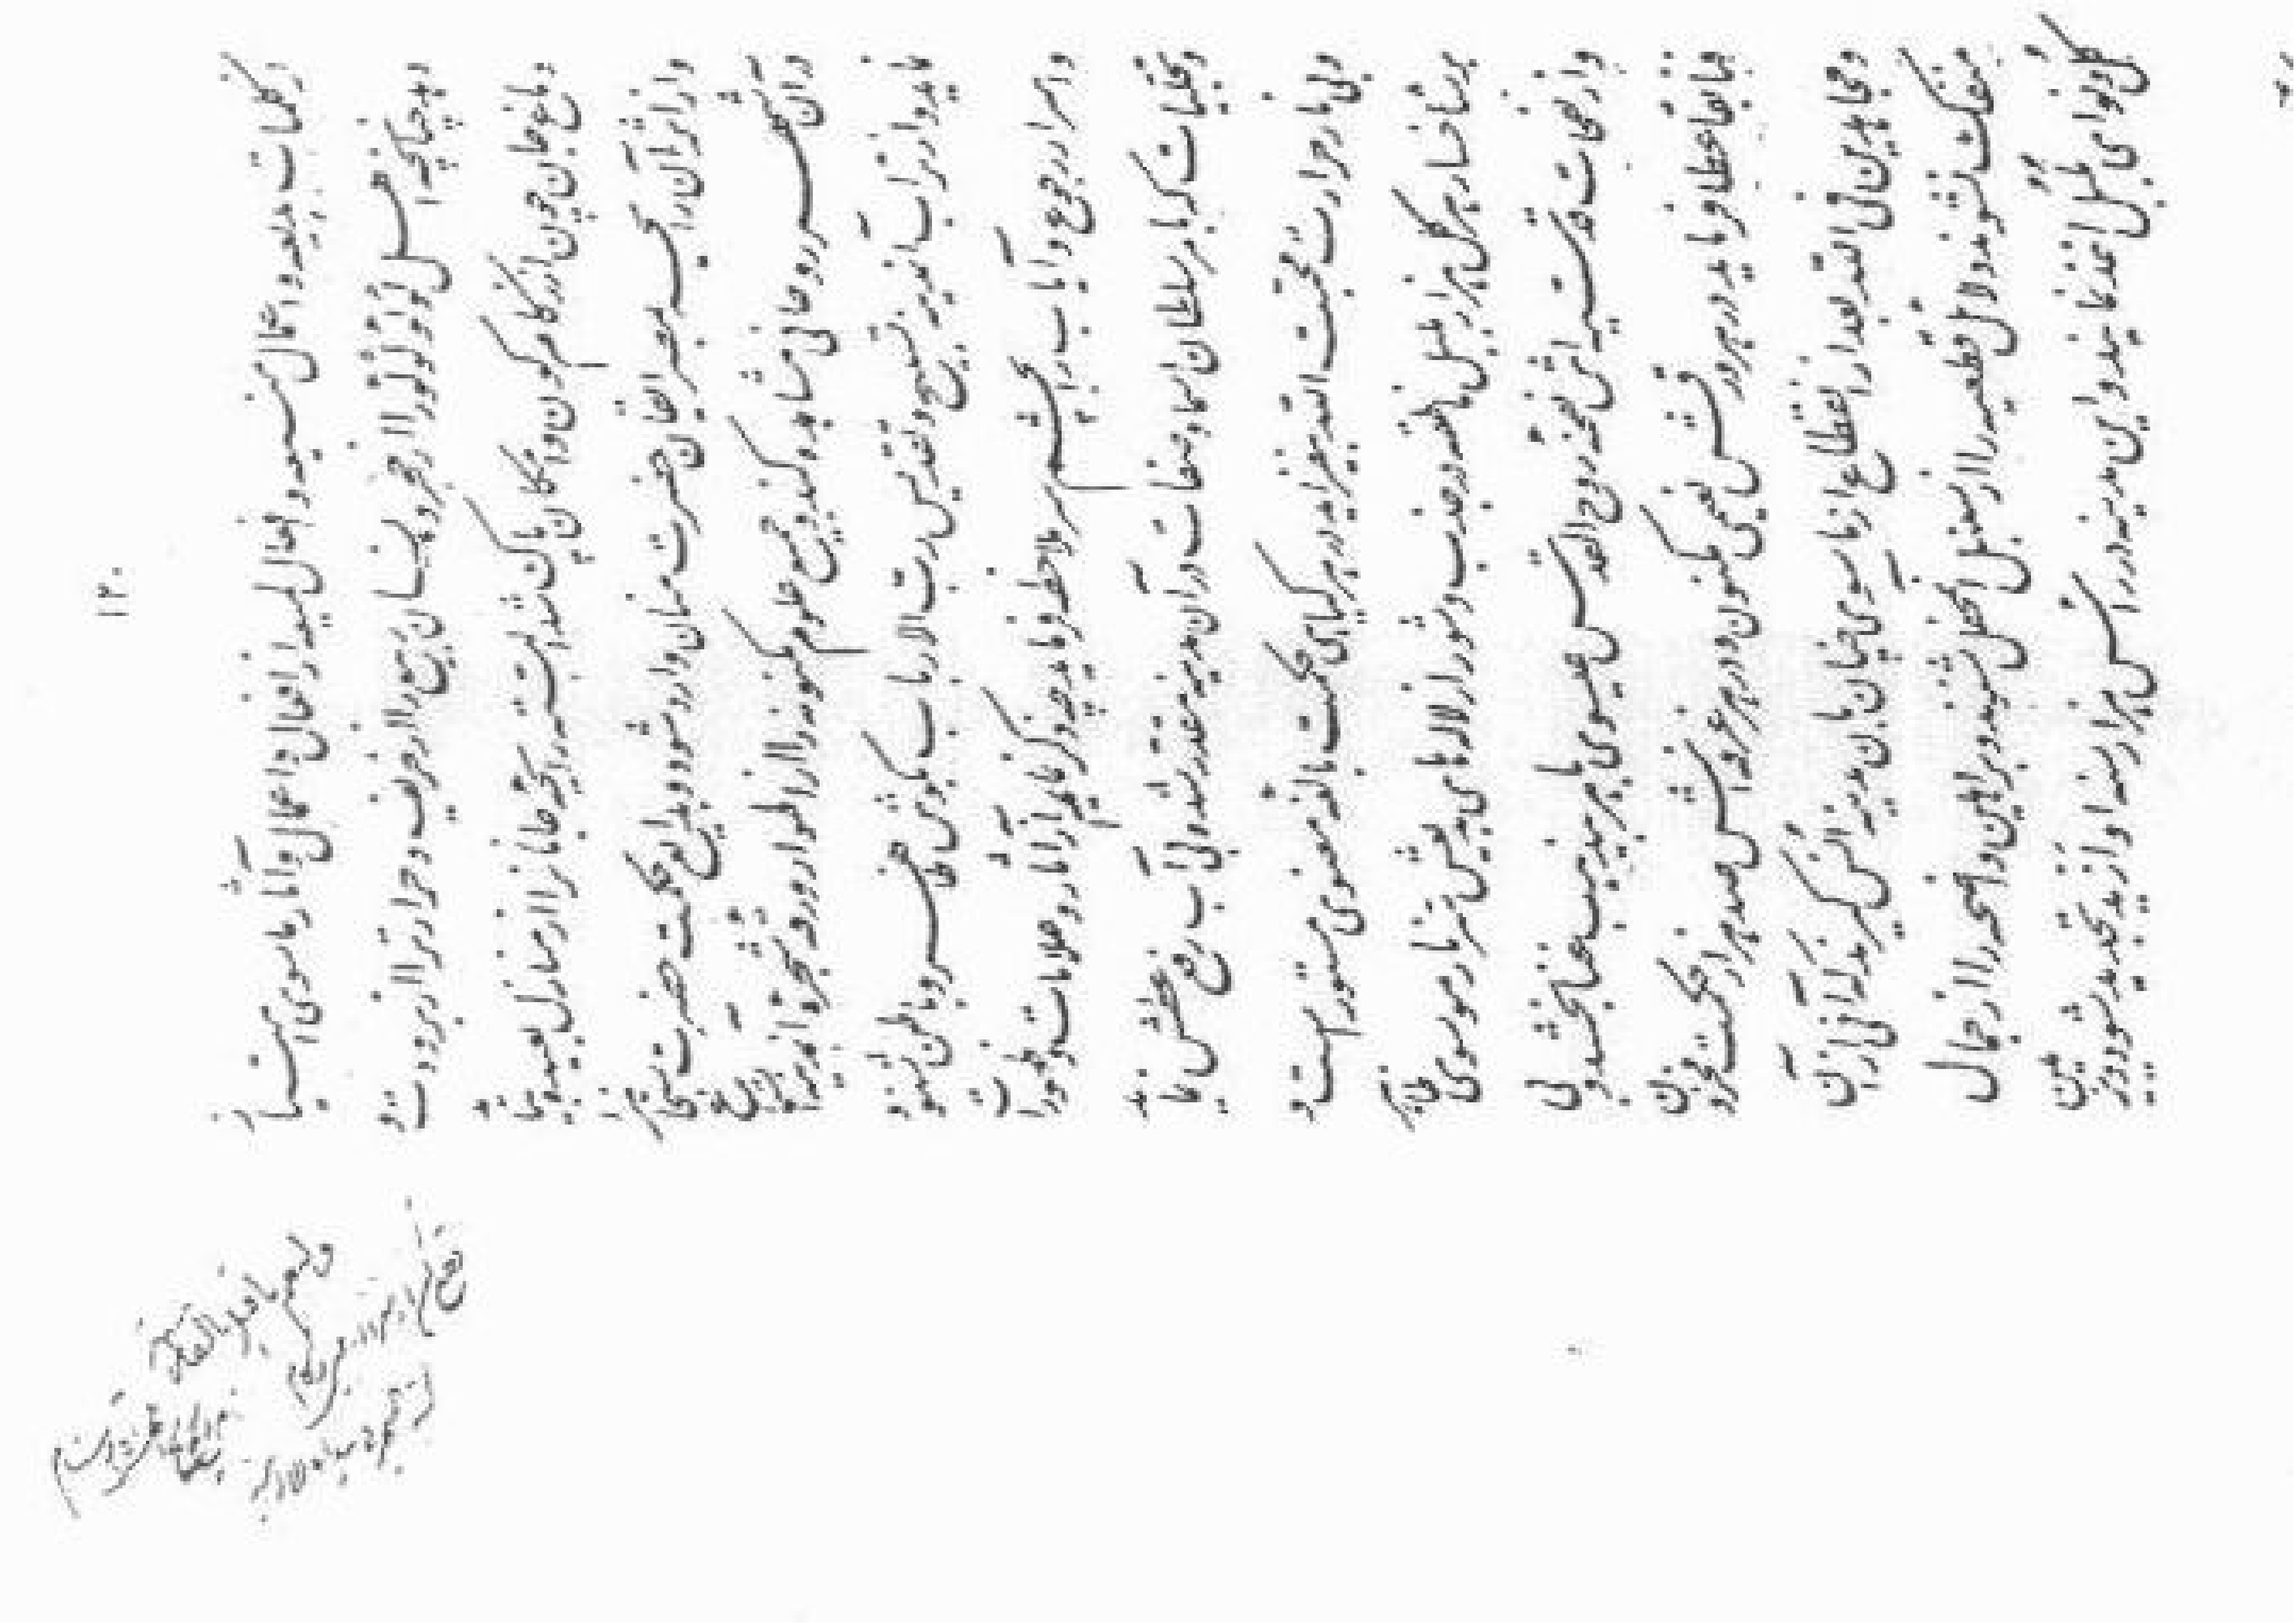 ۱۲۰
از کلمات بدیعه و اعمال منیعه و افعال لمیعه از افعال و اعمال و آثار ماسوی امتیاز
دهد چنانچه اهل لؤلؤ لؤلؤ را از حجر و انسان ربیع را از خریف و حرارت را از برودت و
دماغ جان چون از زکام کون و امکان پاک شد البته رائحه جانان را از منازل بعیده بیابد
و از اثر آن رائحه بمصر ایقان حضرت منان وارد شود و بدایع حکمت حضرت سبحانی را
در آن شهر روحانی مشاهده کند و جمیع علوم مکنونه را از اطوار ورقه شجره آن مدینه استماع
نماید و از تراب آن مدینه تسبیح و تقدیس رب الارباب بگوش ظاهر و باطن شنود و
و اسرار رجوع و ایاب را بچشم سر ملاحظه فرماید چه ذکر نمایم از آثار و علامات و ظهورات
و تجلیات که بامر سلطان اسماء و صفات در آن مدینه مقدر شده بی آب رفع عطش نماید
و بی نار حرارت محبت الله بیفزاید در هر گیاهی حکمت بالغه معنوی مستور است و
بر شاخسار هر گل هزار بلبل ناطقه در جذب و شور از لاله‌های بدیعش سر نار موسوی ظاهر
و از نفحات قدسیه‌اش نفخه روح القدس عیسوی باهر بی ذهب غنا بخشد و بی
فنا بقا عطا فرماید در هر ورقش نعیمی مکنون و در هر غرفه‌اش صد هزار حکمت مخزون
و مجاهدین فی الله بعد از انقطاع از ماسوی چنان بآن مدینه انس گیرند که آنی از آن
منفک نشوند دلائل قطعیه را از سنبل آن محفل شنوند و براهین واضحه را از جمال
گل و نوای بلبل اخذ نمایند و این مدینه در راس هزار سنه او ازید تجدید شود و تزیین